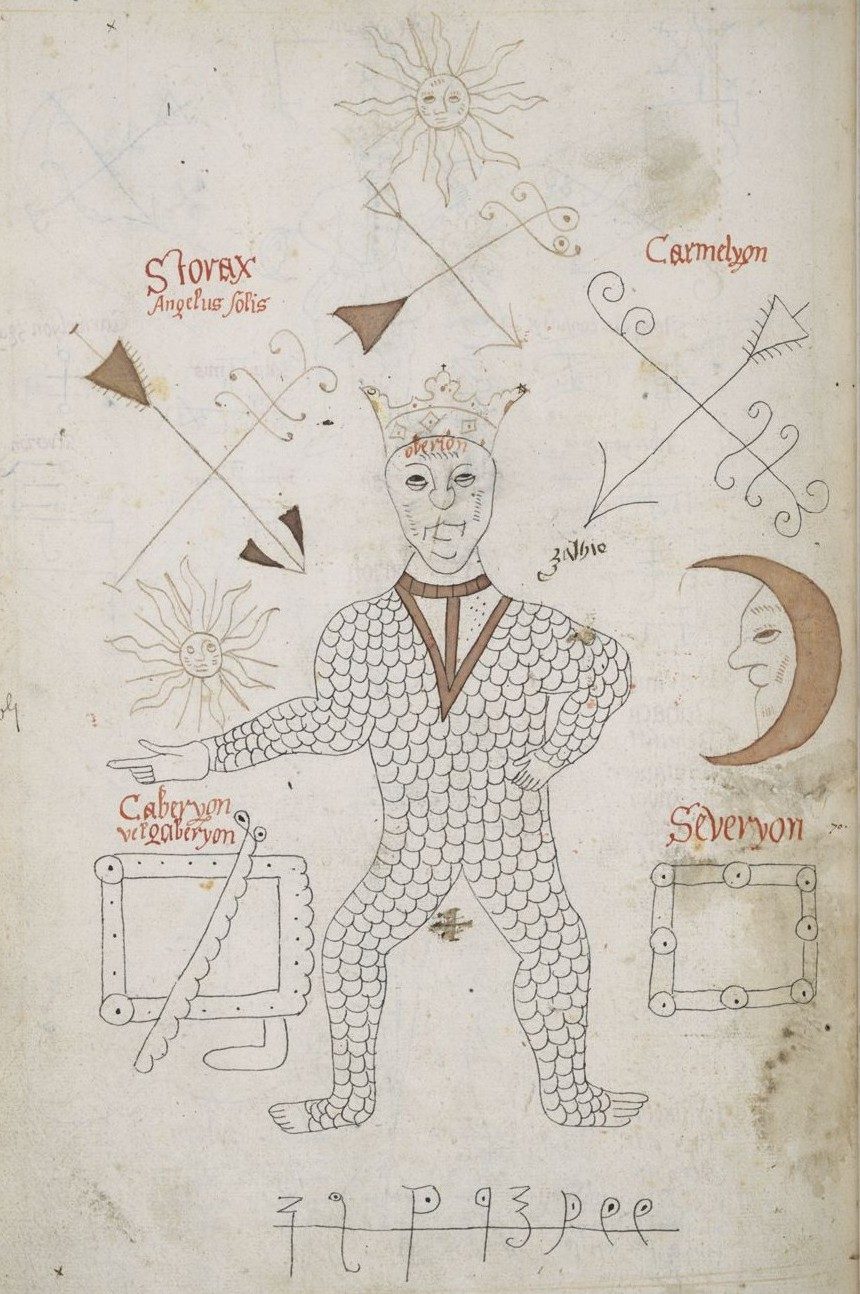 Storax
Angelus solis
Carmelyon
oberion
Caberyon
vel Qaberyon
Severyon